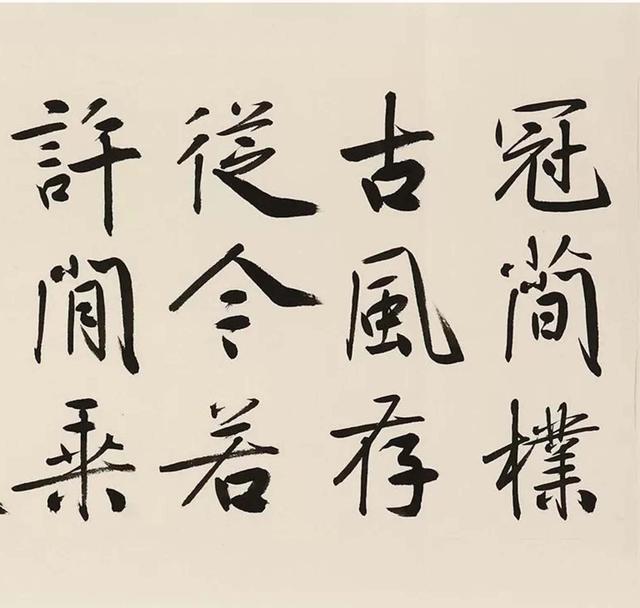 冠簡樸
古風存
從今若
許閒乘